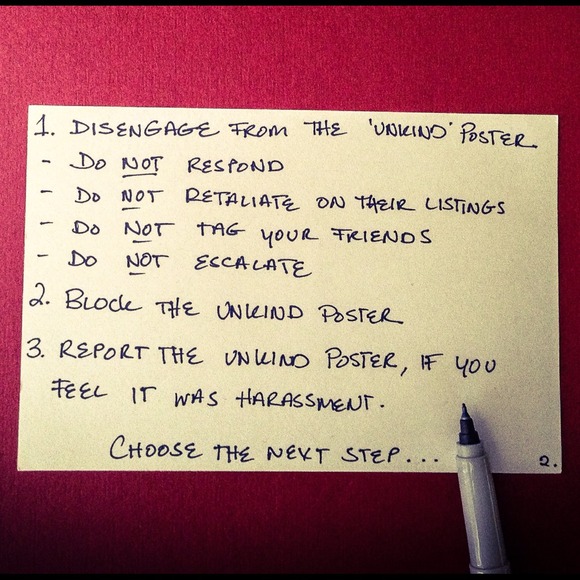 1. DISENGAGE FROM THE 'UNKIND' POSTER
- DO NOT RESPOND
- DO NOT RETALIATE ON THEIR LISTINGS
- DO NOT TAG YOUR FRIENDS
- DO NOT ESCALATE
2. BLOCK THE UNKIND POSTER
3. REPORT THE UNKIND POSTER, IF YOU
FEEL IT WAS HARASSMENT.
CHOOSE THE NEXT STEP...
2.